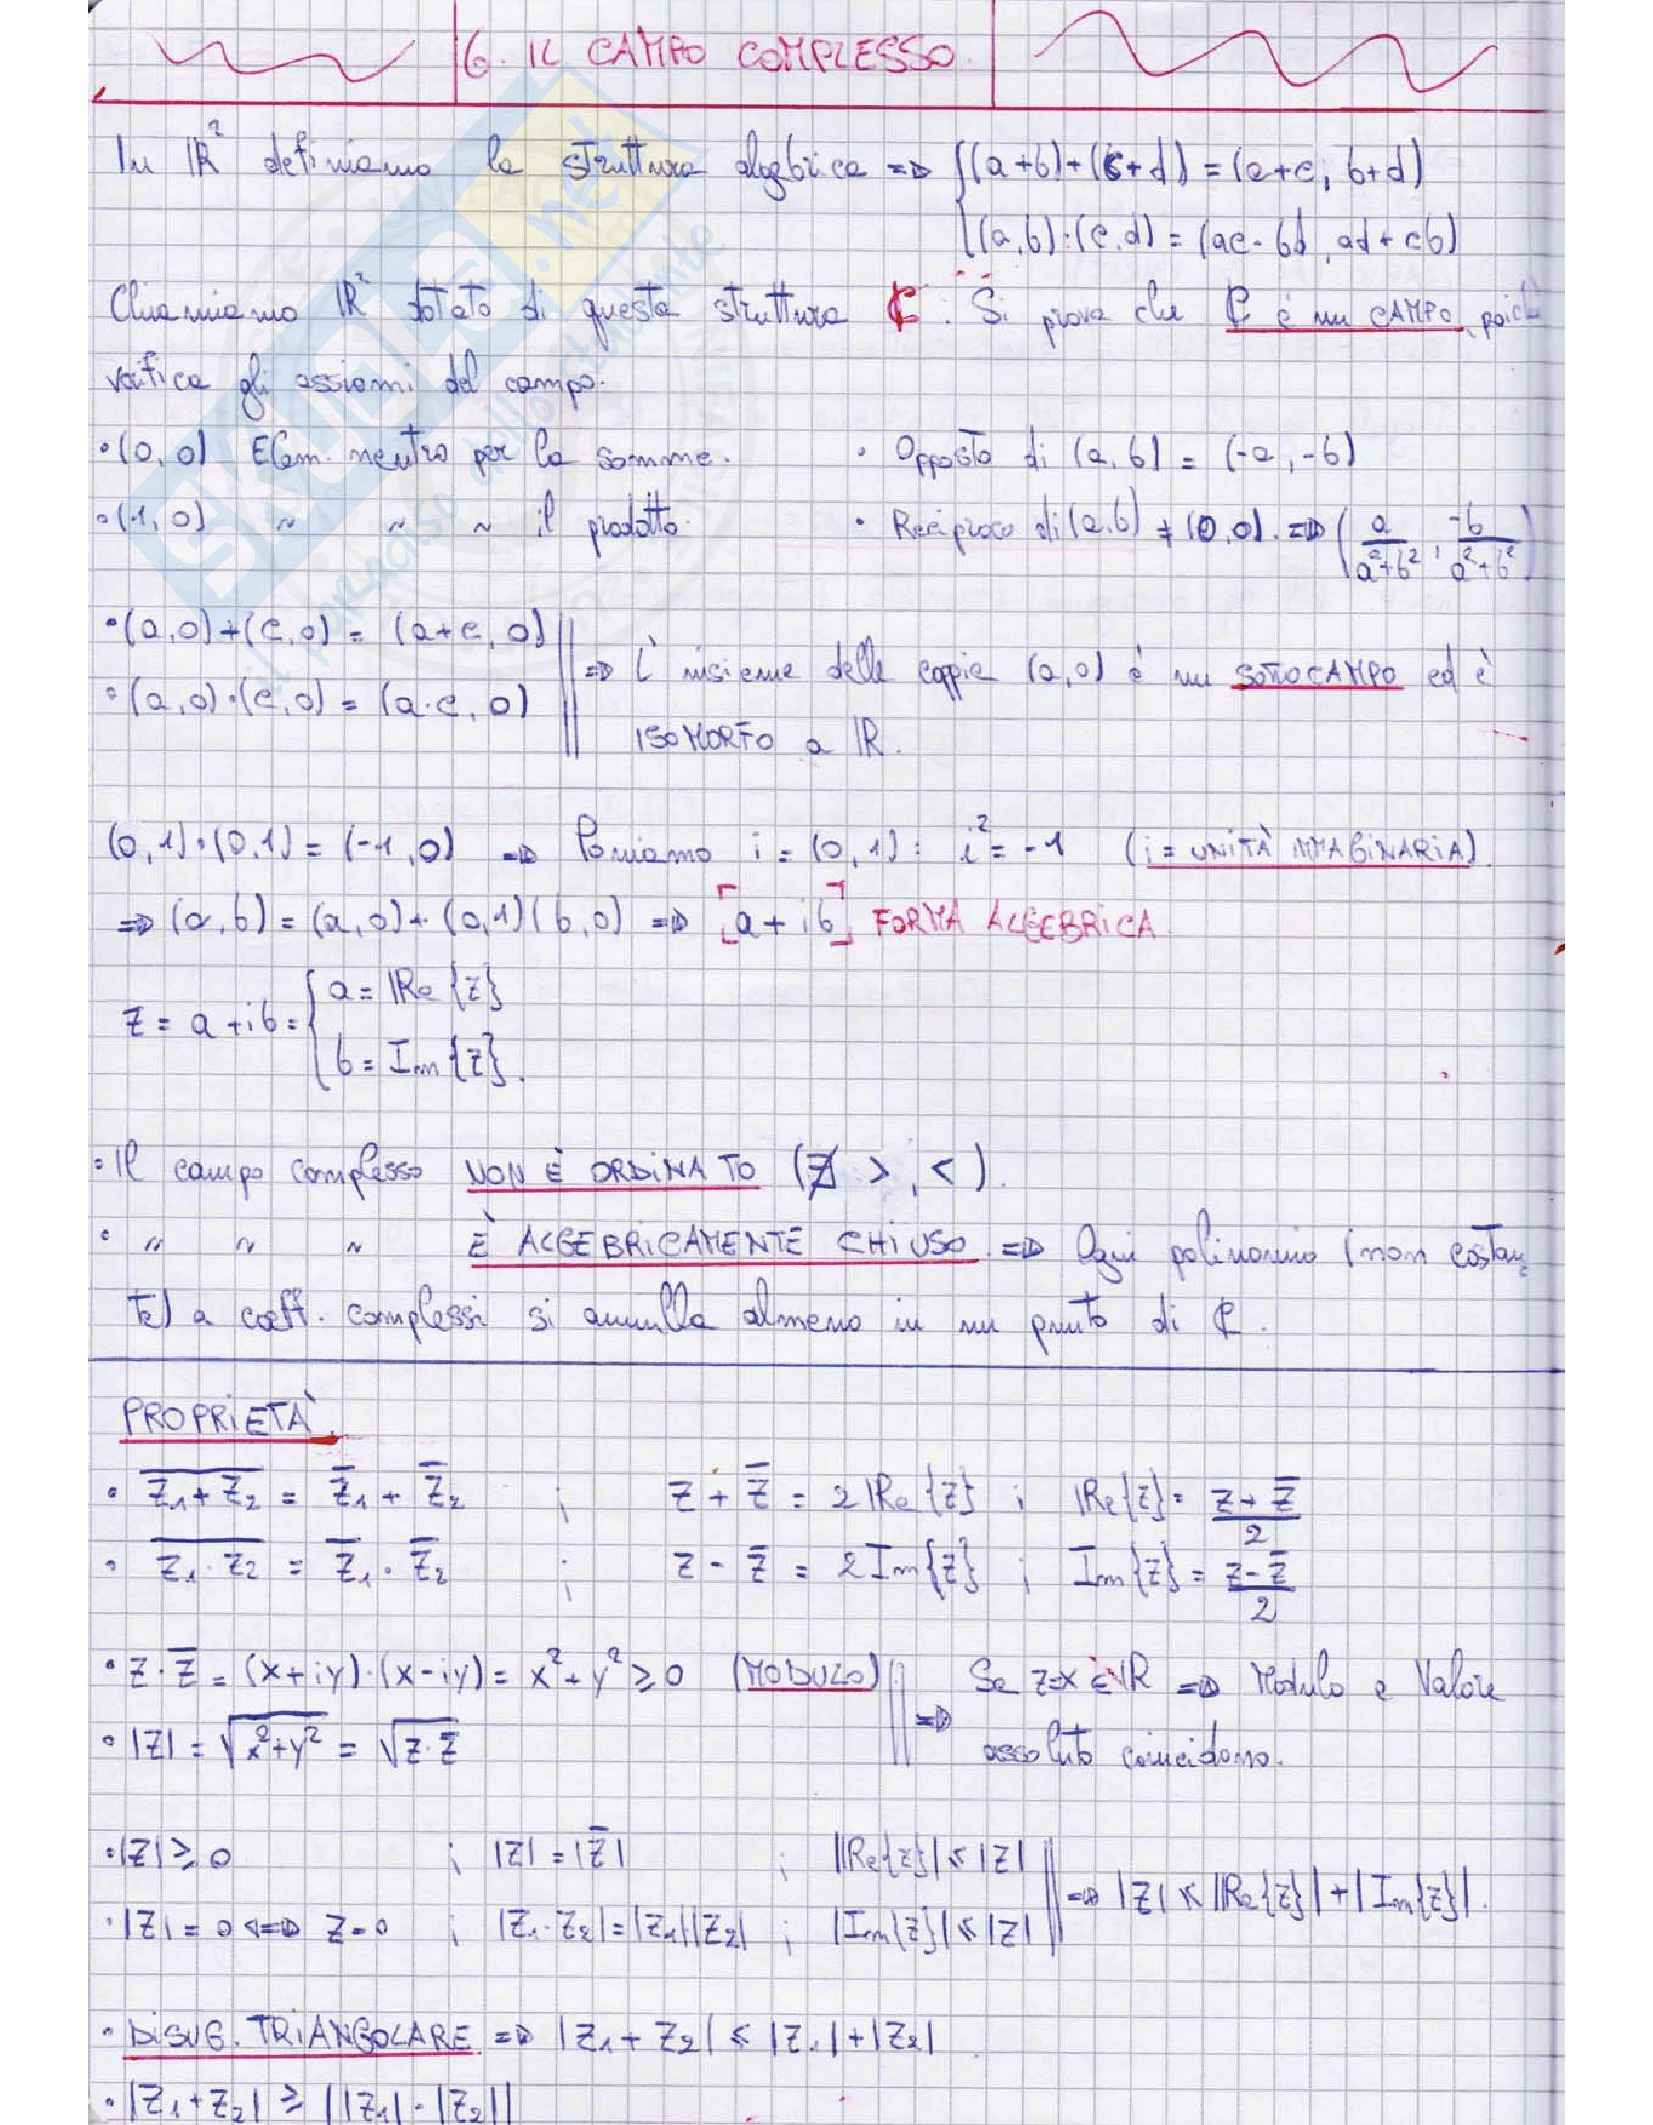 6. IL CAMPO COMPLESSO.
In ℝ² definiamo la struttura algebrica ⇒ { (a+b)+(c+d) = (a+c, b+d)
(a,b)·(c,d) = (ac-bd, ad+cb)
Chiamiamo ℝ² dotato di questa struttura ℂ. Si prova che ℂ è un CAMPO, poichè
verifica gli assiomi del campo.
• (0,0) Elem. neutro per la somma. • Opposto di (a,b) = (-a,-b)
• (1,0) " " " il prodotto. • Reciproco di (a,b) ≠ (0,0). ⇒ (a/(a²+b²), -b/(a²+b²))
• (a,0)+(c,0) = (a+c,0)
• (a,0)·(c,0) = (a·c,0)
⇒ L'insieme delle coppie (a,0) è un SOTTOCAMPO ed è
ISOMORFO a ℝ.
(0,1)·(0,1) = (-1,0) ⇒ Poniamo i = (0,1): i² = -1 (i = UNITÀ IMMAGINARIA).
⇒ (a,b) = (a,0)+(0,1)(b,0) ⇒ [a+ib] FORMA ALGEBRICA
z = a+ib = { a = ℝe{z}
b = Im{z}.
• Il campo complesso NON È ORDINATO (∄ >, <).
• " " " È ALGEBRICAMENTE CHIUSO ⇒ Ogni polinomio (non costan
te) a coeff. complessi si annulla almeno in un punto di ℂ.
PROPRIETÀ.
• \overline{z₁+z₂} = z̄₁ + z̄₂ ; z + z̄ = 2ℝe{z} ; ℝe{z} = (z+z̄)/2
• \overline{z₁·z₂} = z̄₁·z̄₂ ; z - z̄ = 2Im{z} ; Im{z} = (z-z̄)/2
• z·z̄ = (x+iy)·(x-iy) = x²+y² ≥ 0 (MODULO)
• |z| = √(x²+y²) = √(z·z̄)
⇒ Se z=x ∈ ℝ ⇒ Modulo e Valore
assoluto coincidono.
• |z| ≥ 0 ; |z| = |z̄| ; |ℝe{z}| ≤ |z|
• |z| = 0 ⇔ z=0 ; |z₁·z₂| = |z₁||z₂| ; |Im{z}| ≤ |z|
⇒ |z| ≤ |ℝe{z}| + |Im{z}|.
• DISUG. TRIANGOLARE ⇒ |z₁+z₂| ≤ |z₁|+|z₂|
• |z₁+z₂| ≥ ||z₁|-|z₂||
SKUOLA.net
il paradiso dello studente